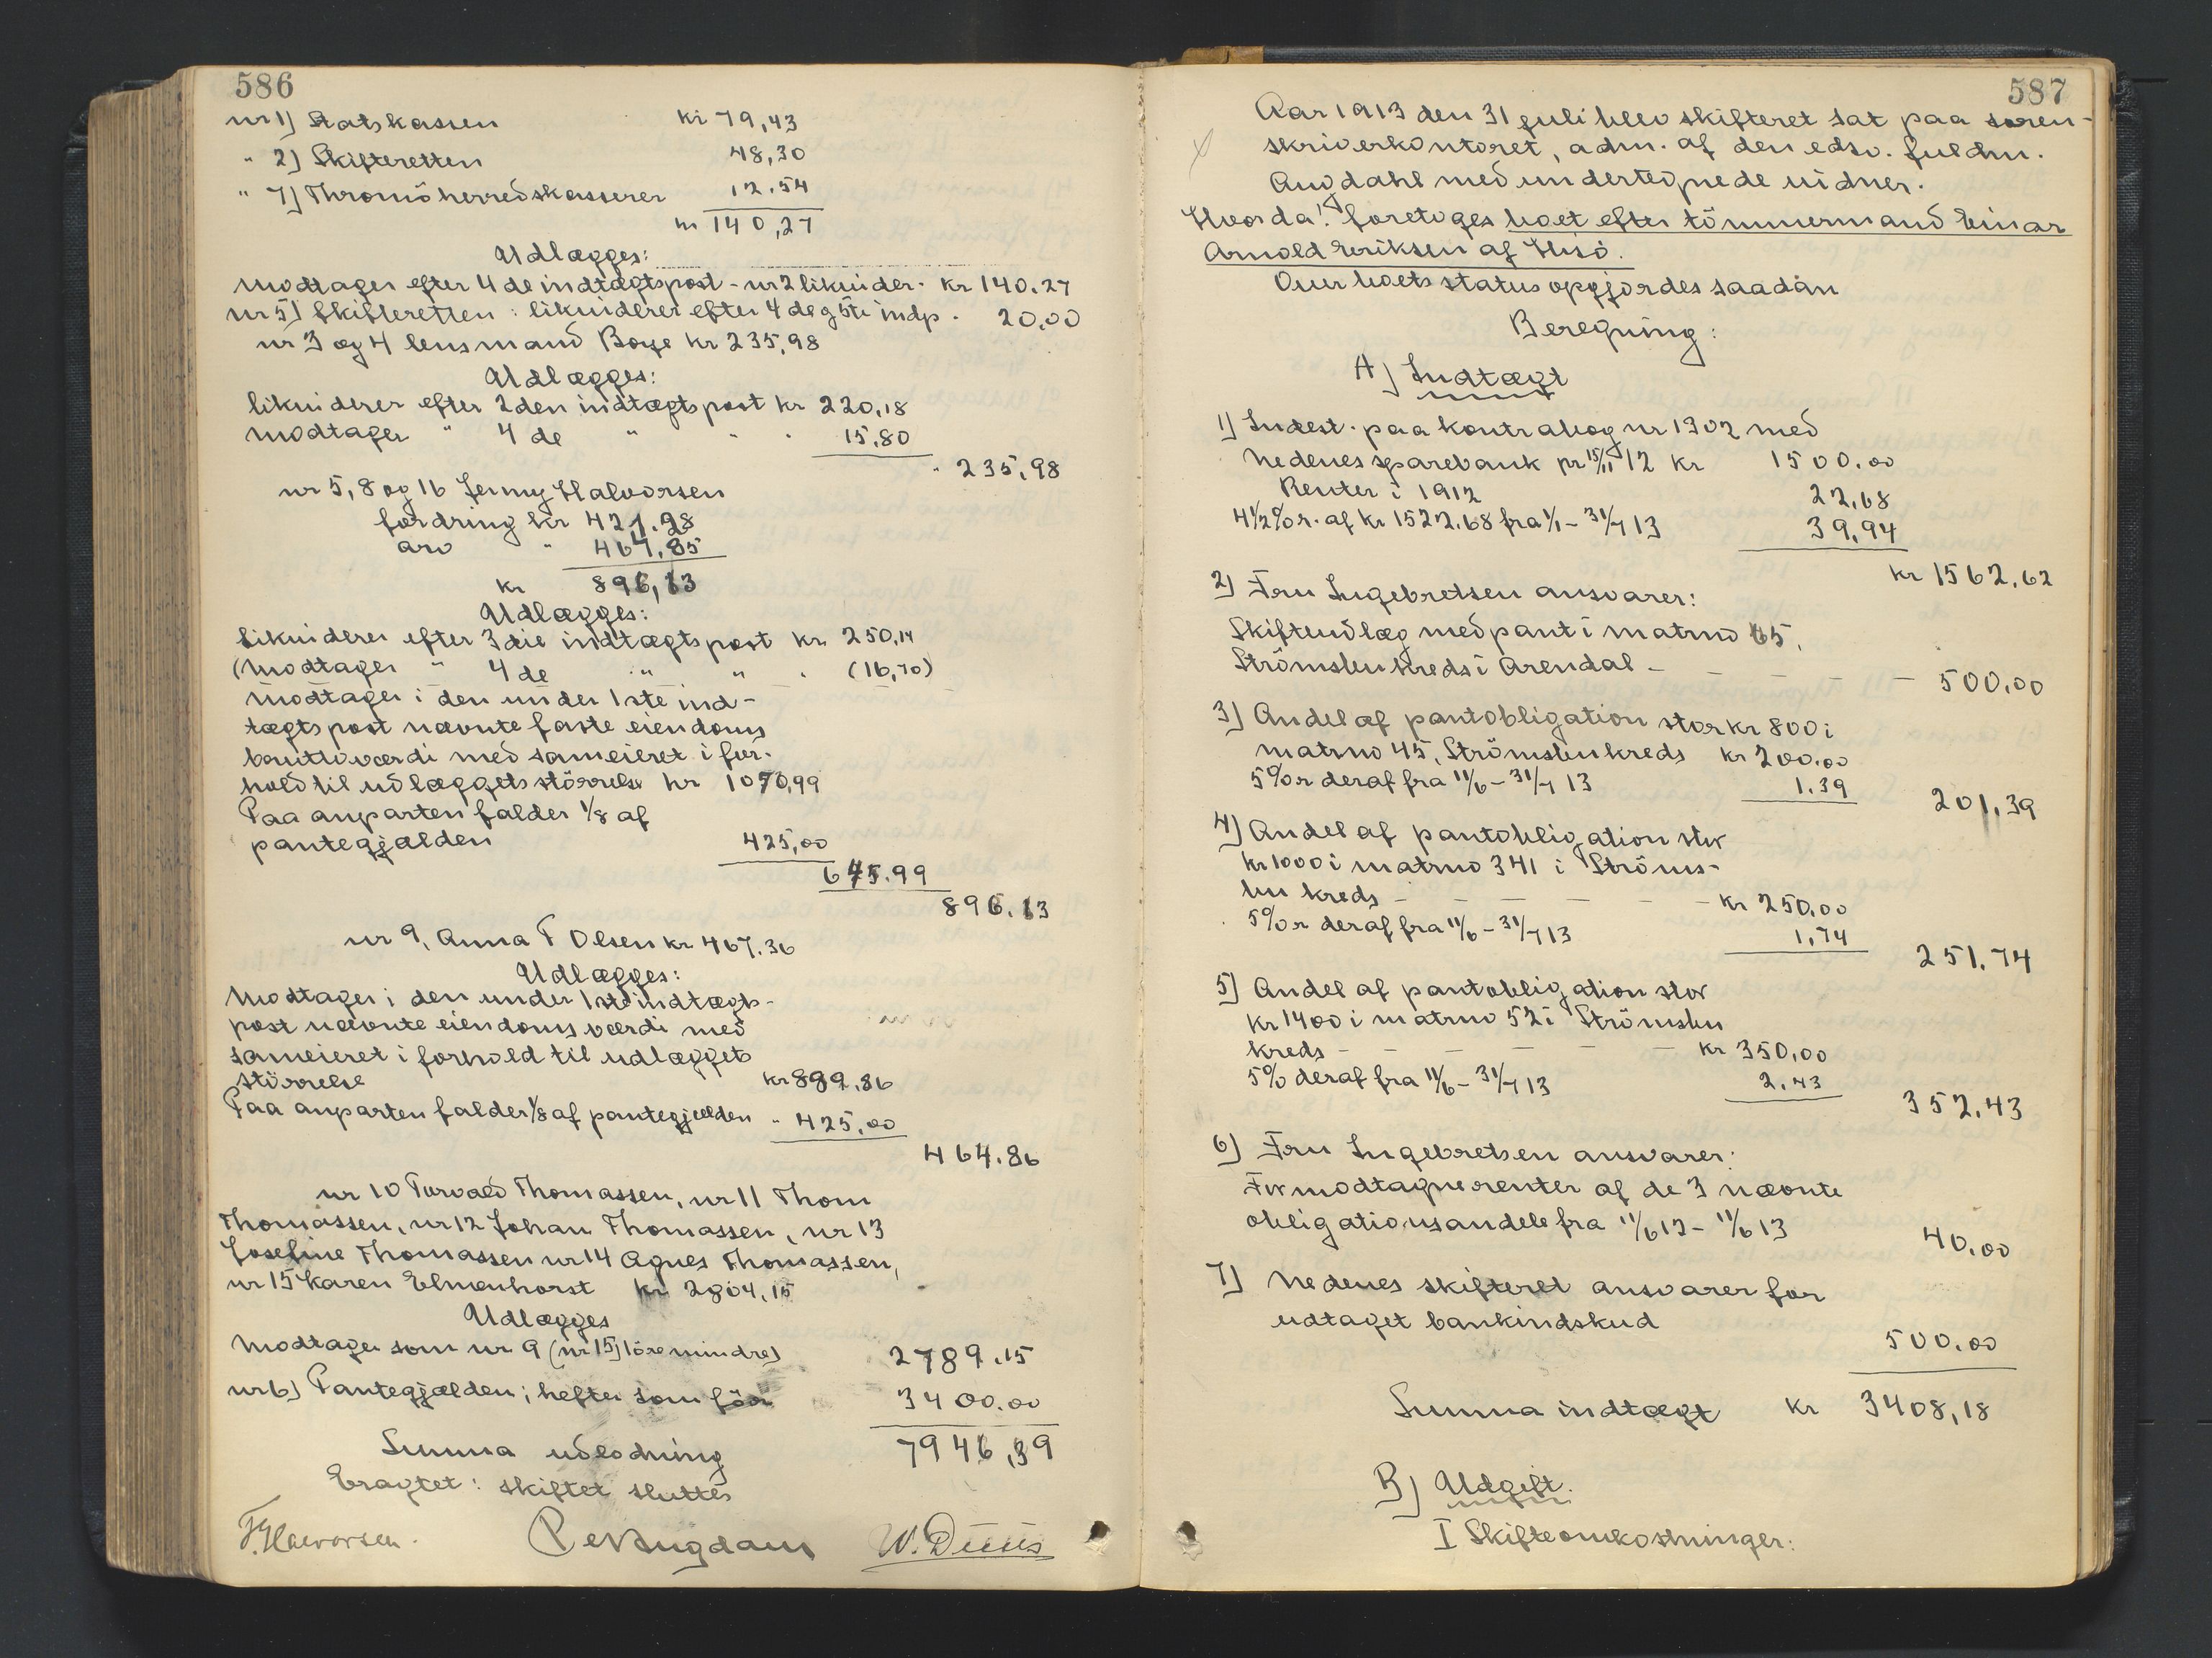 586
nr 1) Statskassen kr 79,43
" 2) Skifteretten 48,30
" 7) Thromö herredskasserer 12.54
kr 140,27
Udlægges:
Modtager efter 4de indtægtspost - nr 2 likvider. kr 140.27
nr 5) Skifteretten: likviderer efter 4de g 5te indp. 20.00
nr 3 og 4 lensmand Boye kr 235,98
Udlægges:
likviderer efter 2den indtægtspost kr 220,18
modtager " 4de " " . 15.80
" 235,98
nr 5, 8 og 16 Jenny Halvorsen
fordring kr 421.28
arv " 464,85
kr 896,13
Udlægges:
likviderer efter 3die indtægtspost kr 250,14
(modtager " 4de " " . (16,70)
modtager i den under 1ste ind-
tægtspost nævnte faste eiendoms
bruttoværdi med sameieret i for-
hold til udlæggets störrelse kr 1070,99
Paa anparten falder 1/8 af
pantegjælden 425,00
645.99
896.13
nr 9, Anna T Olsen kr 467.36
Udlægges:
Modtager i den under 1ste indtægts-
post nævnte eiendoms værdi med
sameieret i forhold til udlæggets
störrelse kr 889.86
Paa anparten falder 1/8 af pantegjælden " 425,00
464.86
nr 10 Torvald Thomassen, nr 11 Thom
Thomassen, nr 12 Johan Thomassen, nr 13
Josefine Thomassen nr 14 Agnes Thomassen,
nr 15 Karen Elmenhorst kr 2804,15
Udlægges
Modtager som nr 9 (nr 15) 1 öre mindre) 2789.15
nr 6) Pantegjælden; hefter som för 3400.00
Summa udlodning 7946,39
Eragtet: skiftet sluttes
J. Halvorsen. P e W. Diiis
587
Aar 1913 den 31 juli blev skifteret sat paa soren-
skriverkontoret, adm. af den edsv. fuldm.
Augdahl med undertegnede vidner.
Hvorda! foretoges boet efter tömmermand Einar
Arnold Eriksen af Hisö.
Over boets status opgjordes saadan
Beregning:
A) Indtægt
1) Indest. paa kontrabog nr 1302 med
Nedenes sparebank pr 15/11 12 kr 1500.00
Renter i 1912 22.68
4 1/2 % r. af kr 1522.68 fra 1/1 - 31/7 13 39.94
kr 1562.62
2) Fru Ingebretsen ansvarer:
Skifteudlæg med pant i matrno 65,
Strömsbu kreds i Arendal - - - - - 500.00
3) Andel af pantobligation stor kr 800 i
matrno 45, Strömsbu kreds kr 200.00
5% r deraf fra 11/6 - 31/7 13 1.39
201.39
4) Andel af pantobligation stor
kr 1000 i matrno 341 i Ströms-
bu kreds - - - - - - kr 250.00
5% r deraf fra 11/6 - 31/7 13 1,74
251.74
5) Andel af pantobligation stor
kr 1400 i matrno 52 i Strömsbu
kreds - - - - - - kr 350,00
5% deraf fra 11/6 - 31/7 13 2.43
352.43
6) Fru Ingebretsen ansvarer:
For modtagne renter af de 3 nævnte
obligationsandele fra 11/6 12 - 11/6 13 40.00
7) Nedenes skifteret ansvarer for
udtaget bankindskud
500.00
Summa indtægt kr 3408,18
B) Udgift.
I Skifteomkostninger: